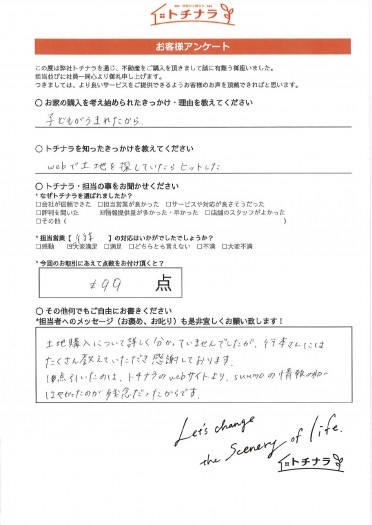 トチナラ
お客様アンケート
この度は弊社トチナラを通じ、不動産をご購入を頂きまして誠に有難う御座いました。
担当並びに社員一同心より御礼申し上げます。
つきましては、より良いサービスをご提供できるようお客様のお声を頂戴できればと思います。
○ お家の購入を考え始められたきっかけ・理由を教えてください
子どもがうまれたから
○ トチナラを知ったきっかけを教えてください
webで土地を探していたらヒットした
○ トチナラ・担当の事をお聞かせください
* なぜトチナラを選ばれましたか?
□会社が信頼できた □担当営業が良かった □サービスや対応が良さそうだった
□評判を聞いた ☑情報提供量が多かった・早かった □店舗のスタッフがよかった
□その他 ( )
* 担当営業【 行本 】の対応はいかがでしたでしょうか?
□感動 ☑大変満足 □満足 □どちらとも言えない □不満 □大変不満
* 今回のお取引にあえて点数をお付け頂くと?
99 点
○ その他何でもご自由にお書きください
*担当者へのメッセージ（お褒め、お叱り）も是非宜しくお願い致します！
土地購入について詳しく分かっていませんでしたが、行本さんには
たくさん教えていただき感謝しております。
1点引いたのは、トチナラのwebサイトより、suumoの情報の方が
はやかったのが残念だったからです。
Let's change
the Scenery of life.
トチナラ